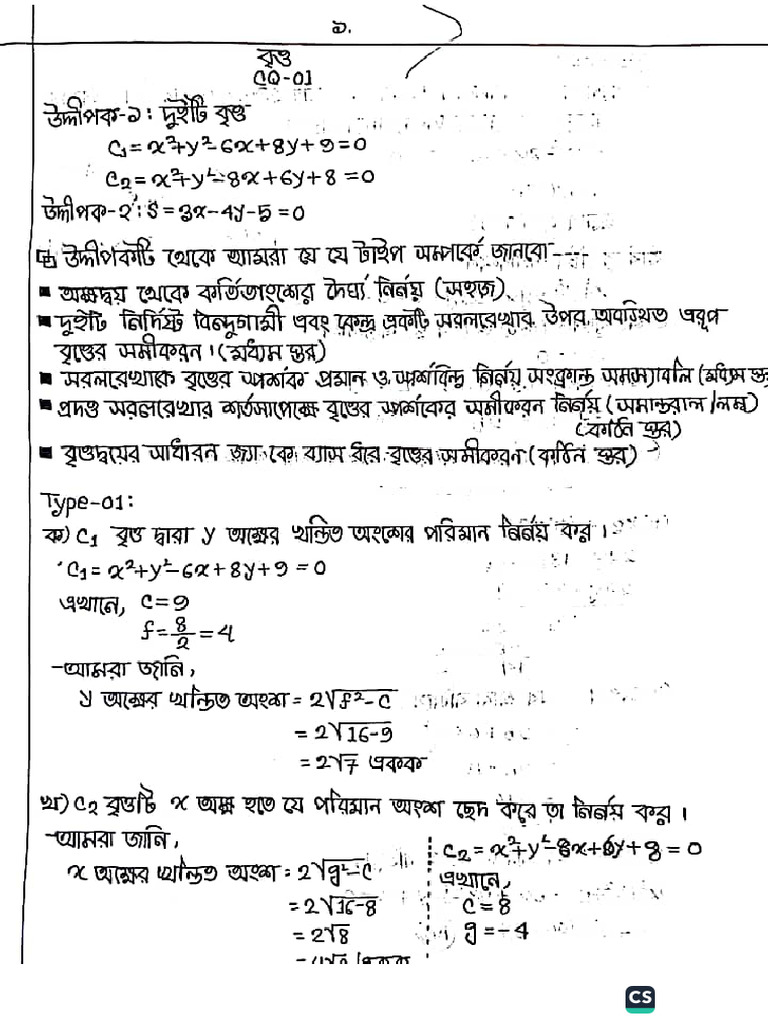 ১.
বৃত্ত
CQ-01
উদ্দীপক-১: দুইটি বৃত্ত
C₁ = x²+y²-6x+8y+9=0
C₂ = x²+y²-8x+6y+8=0
উদ্দীপক-২: S = 3x-4y-5=0
উদ্দীপকটি থেকে আমরা যে যে টাইপ সম্পর্কে জানবো-
▪ অক্ষদ্বয় থেকে কর্তিতাংশের দৈর্ঘ্য নির্নয় (সহজ)
▪ দুইটি নির্দিষ্ট বিন্দুগামী এবং কেন্দ্র একটি সরলরেখার উপর অবস্থিত এরূপ
বৃত্তের সমীকরন। (মধ্যম স্তর)
▪ সরলরেখাকে বৃত্তের স্পর্শক প্রমান ও স্পর্শবিন্দু নির্নয় সংক্রান্ত সমস্যাবলি (মধ্যম স্ত
▪ প্রদত্ত সরলরেখার শর্তসাপেক্ষে বৃত্তের স্পর্শকের সমীকরন নির্নয় (সমান্তরাল/লম্ব)
(কঠিন স্তর)
▪ বৃত্তদ্বয়ের সাধারন জ্যা কে ব্যাস ধরে বৃত্তের সমীকরন (কঠিন স্তর)
Type-01:
ক) C₁ বৃত্ত দ্বারা y অক্ষের খন্ডিত অংশের পরিমান নির্নয় কর।
C₁ = x²+y²-6x+8y+9=0
এখানে, C=9
f = 8/2 = 4
আমরা জানি,
y অক্ষের খন্ডিত অংশ = 2√f²-c
= 2√16-9
= 2√7 একক
খ) C₂ বৃত্তটি x অক্ষ হতে যে পরিমান অংশ ছেদ করে তা নির্নয় কর।
আমরা জানি,
C₂ = x²+y²-8x+6y+8=0
x অক্ষের খন্ডিত অংশ = 2√g²-c
এখানে,
= 2√16-8
C=8
= 2√8
g=-4
CS